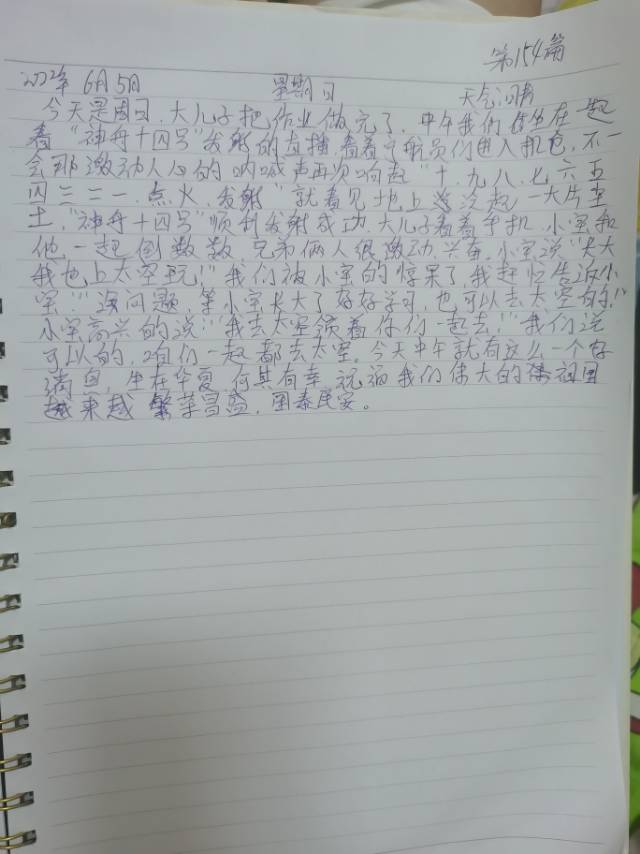 第154篇
2022年 6月5日 星期日 天气:晴
今天是周日,大儿子把作业做完了,中午我们坐在一起
看“神舟十四号”发射的直播,看着宇航员们进入机仓,不一
会那激动人心的呐喊声再次响起“十、九、八、七、六、五
四三二一,点火,发射”就看见地上 一大片尘
土,“神舟十四号”顺利发射成功,大儿子看着手机,小宝和
他一起倒数数,兄弟俩人很激动,兴奋,小宝说“大大
我也上太空玩!”我们被小宝的惊呆了,我赶忙告诉小
宝:“没问题,等小宝长大了好好学习,也可以去太空的!”
小宝高兴的说:“我去太空领着你们一起去!”我们说
可以的,咱们一起都去太空,今天中午就有这么一个好
消息,生在华夏,何其有幸,祝福我们伟大的祖国
越来越繁荣昌盛,国泰民安。